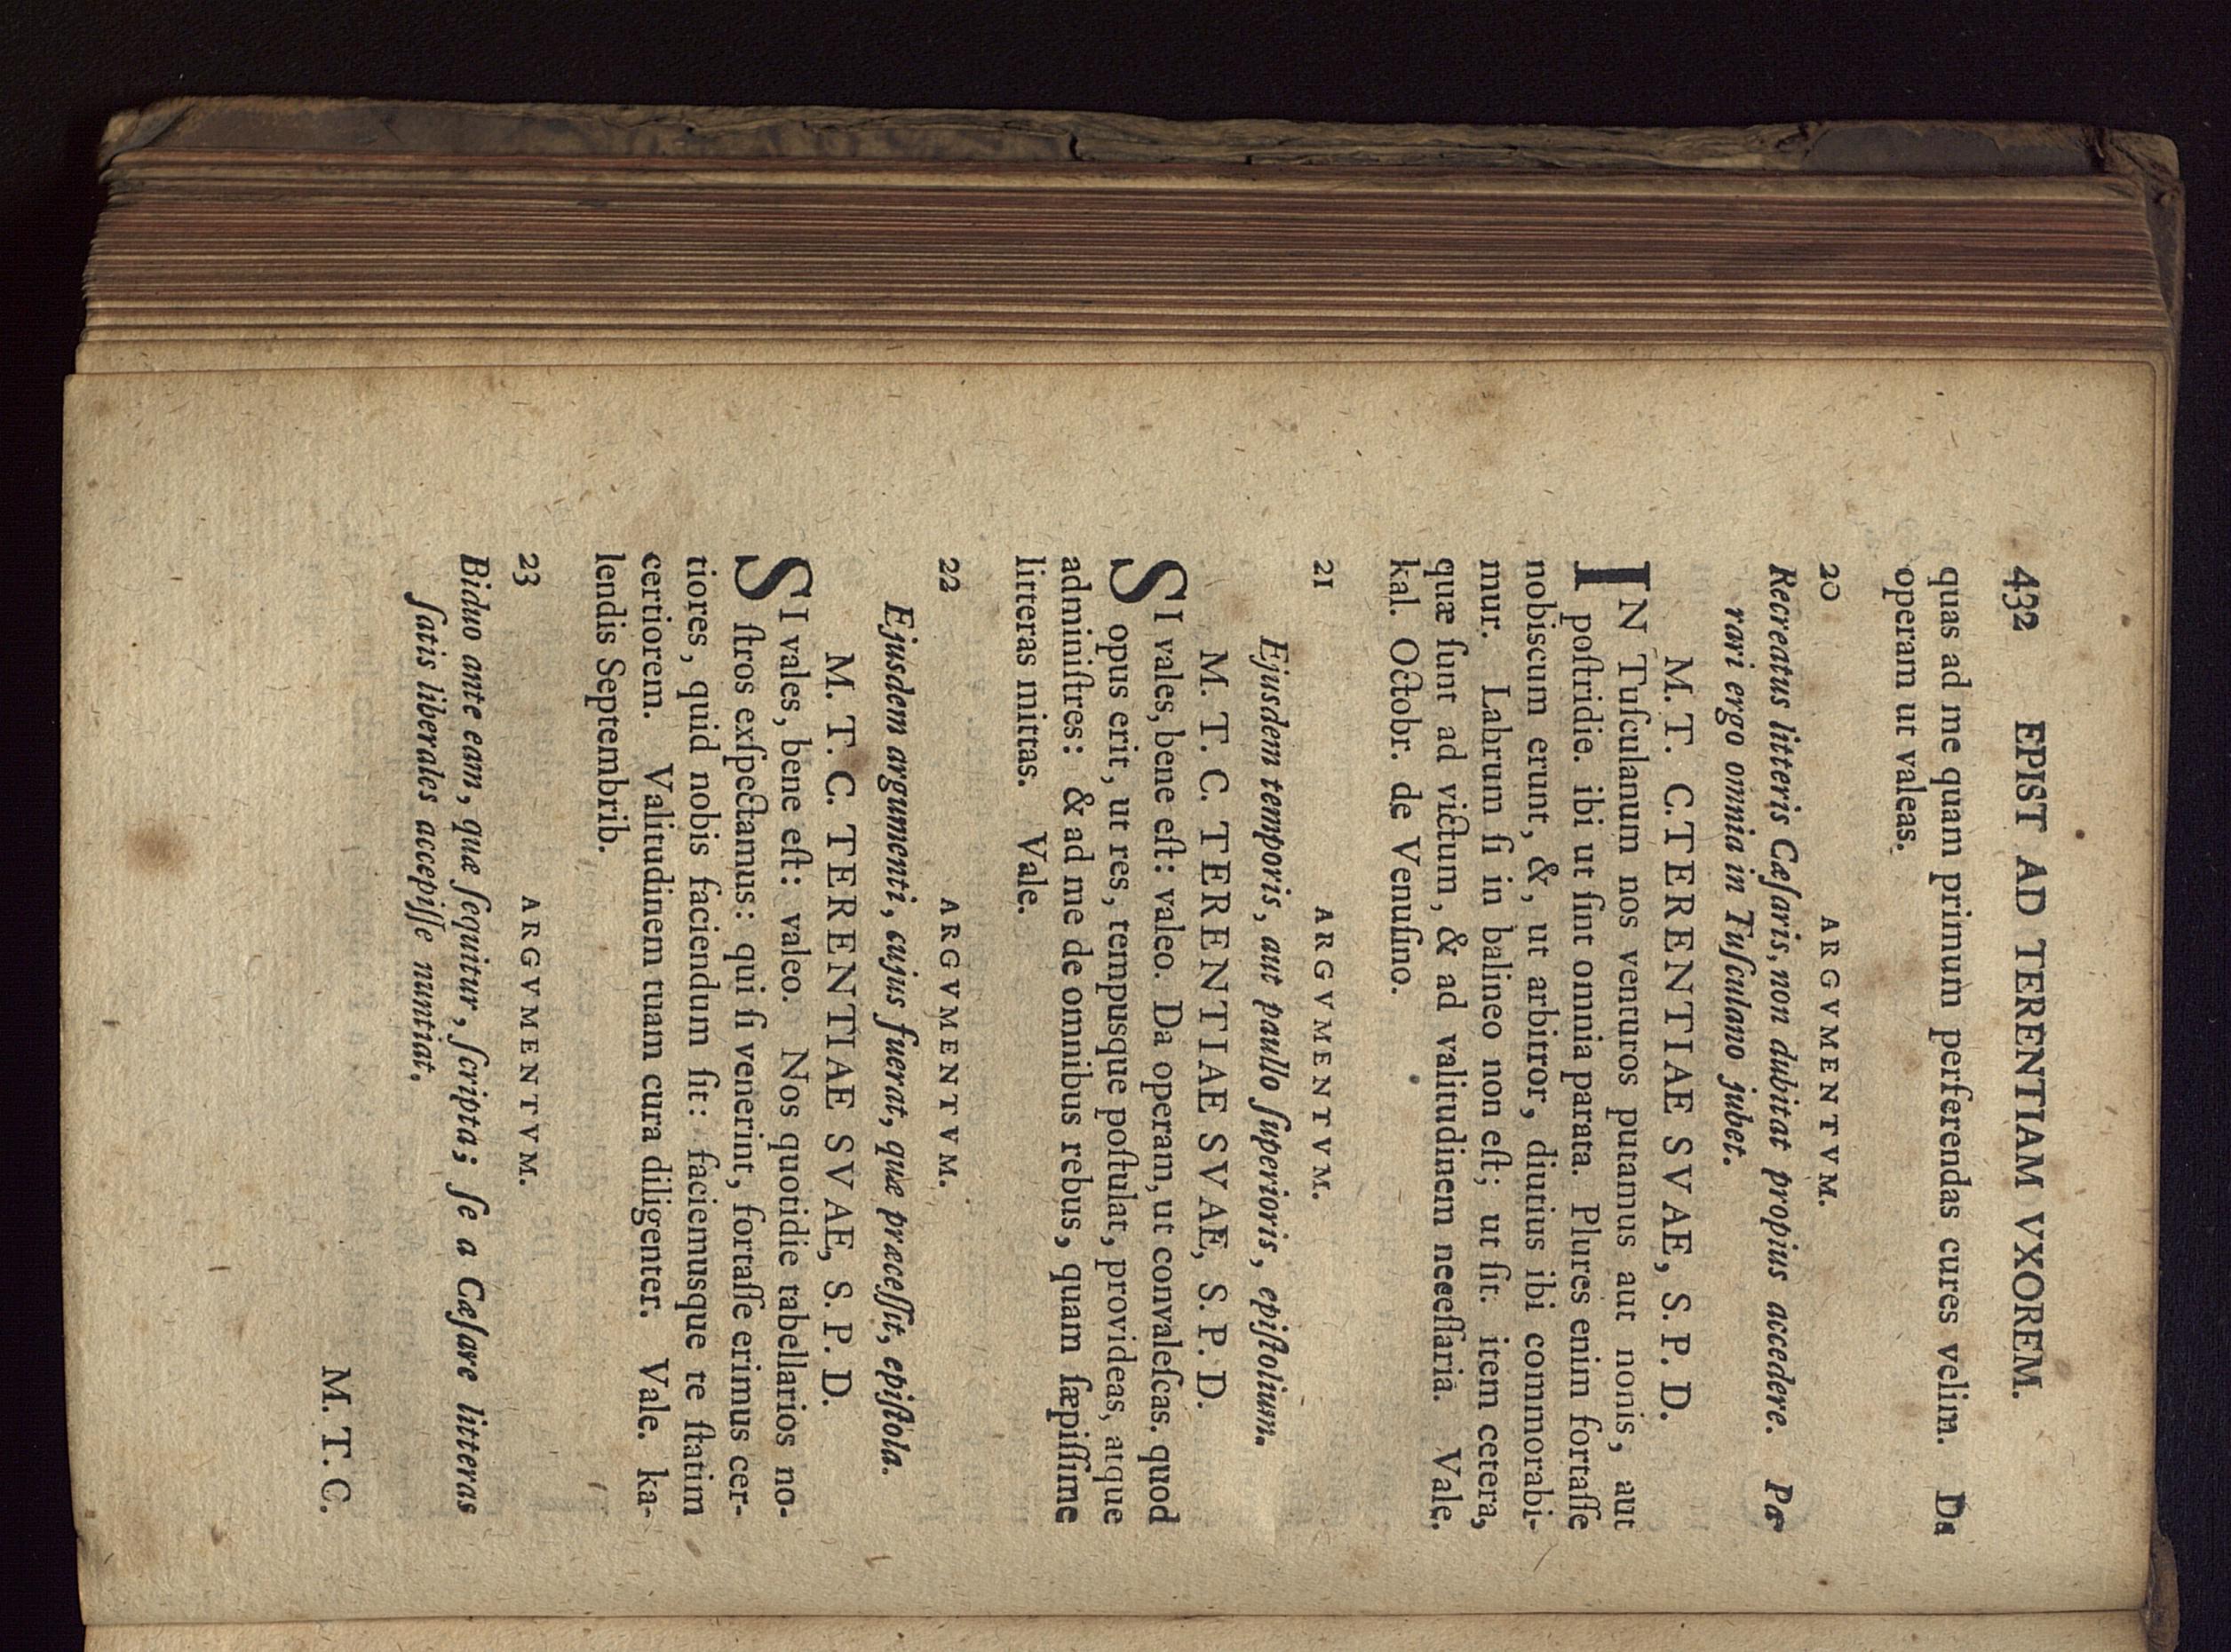 432 EPIST AD TERENTIAM VXOREM.
quas ad me quam primum perferendas cures velim. Da
operam ut valeas.
20 ARGVMENTVM.
Recreatus litteris Cæſaris, non dubitat propius accedere. Pa-
rari ergo omnia in Tuſculano jubet.
M. T. C. TERENTIAE SVAE, S. P. D.
IN Tuſculanum nos venturos putamus aut nonis, aut
poſtridie. ibi ut ſint omnia parata. Plures enim fortaſſe
nobiscum erunt, &, ut arbitror, diutius ibi commorabi-
mur. Labrum ſi in balineo non eſt; ut ſit. item cetera,
quæ ſunt ad victum, & ad valitudinem neceſſaria. Vale.
kal. Octobr. de Venuſino.
21 ARGVMENTVM.
Ejusdem temporis, aut paullo ſuperioris, epiſtolium.
M. T. C. TERENTIAE SVAE, S. P. D.
SI vales, bene eſt: valeo. Da operam, ut convaleſcas. quod
opus erit, ut res, tempusque poſtulat, provideas, atque
adminiſtres: & ad me de omnibus rebus, quam ſæpiſſime
litteras mittas. Vale.
22 ARGVMENTVM.
Ejusdem argumenti, cujus fuerat, quæ præceſſit, epiſtola.
M. T. C. TERENTIAE SVAE, S. P. D.
SI vales, bene eſt: valeo. Nos quotidie tabellarios no-
ſtros exſpectamus: qui ſi venerint, fortaſſe erimus cer-
tiores, quid nobis faciendum ſit: faciemusque te ſtatim
certiorem. Valitudinem tuam cura diligenter. Vale. ka-
lendis Septembrib.
23 ARGVMENTVM.
Biduo ante eam, quæ ſequitur, ſcripta; ſe a Cæſare litteras
ſatis liberales accepiſſe nuntiat.
M. T. C.